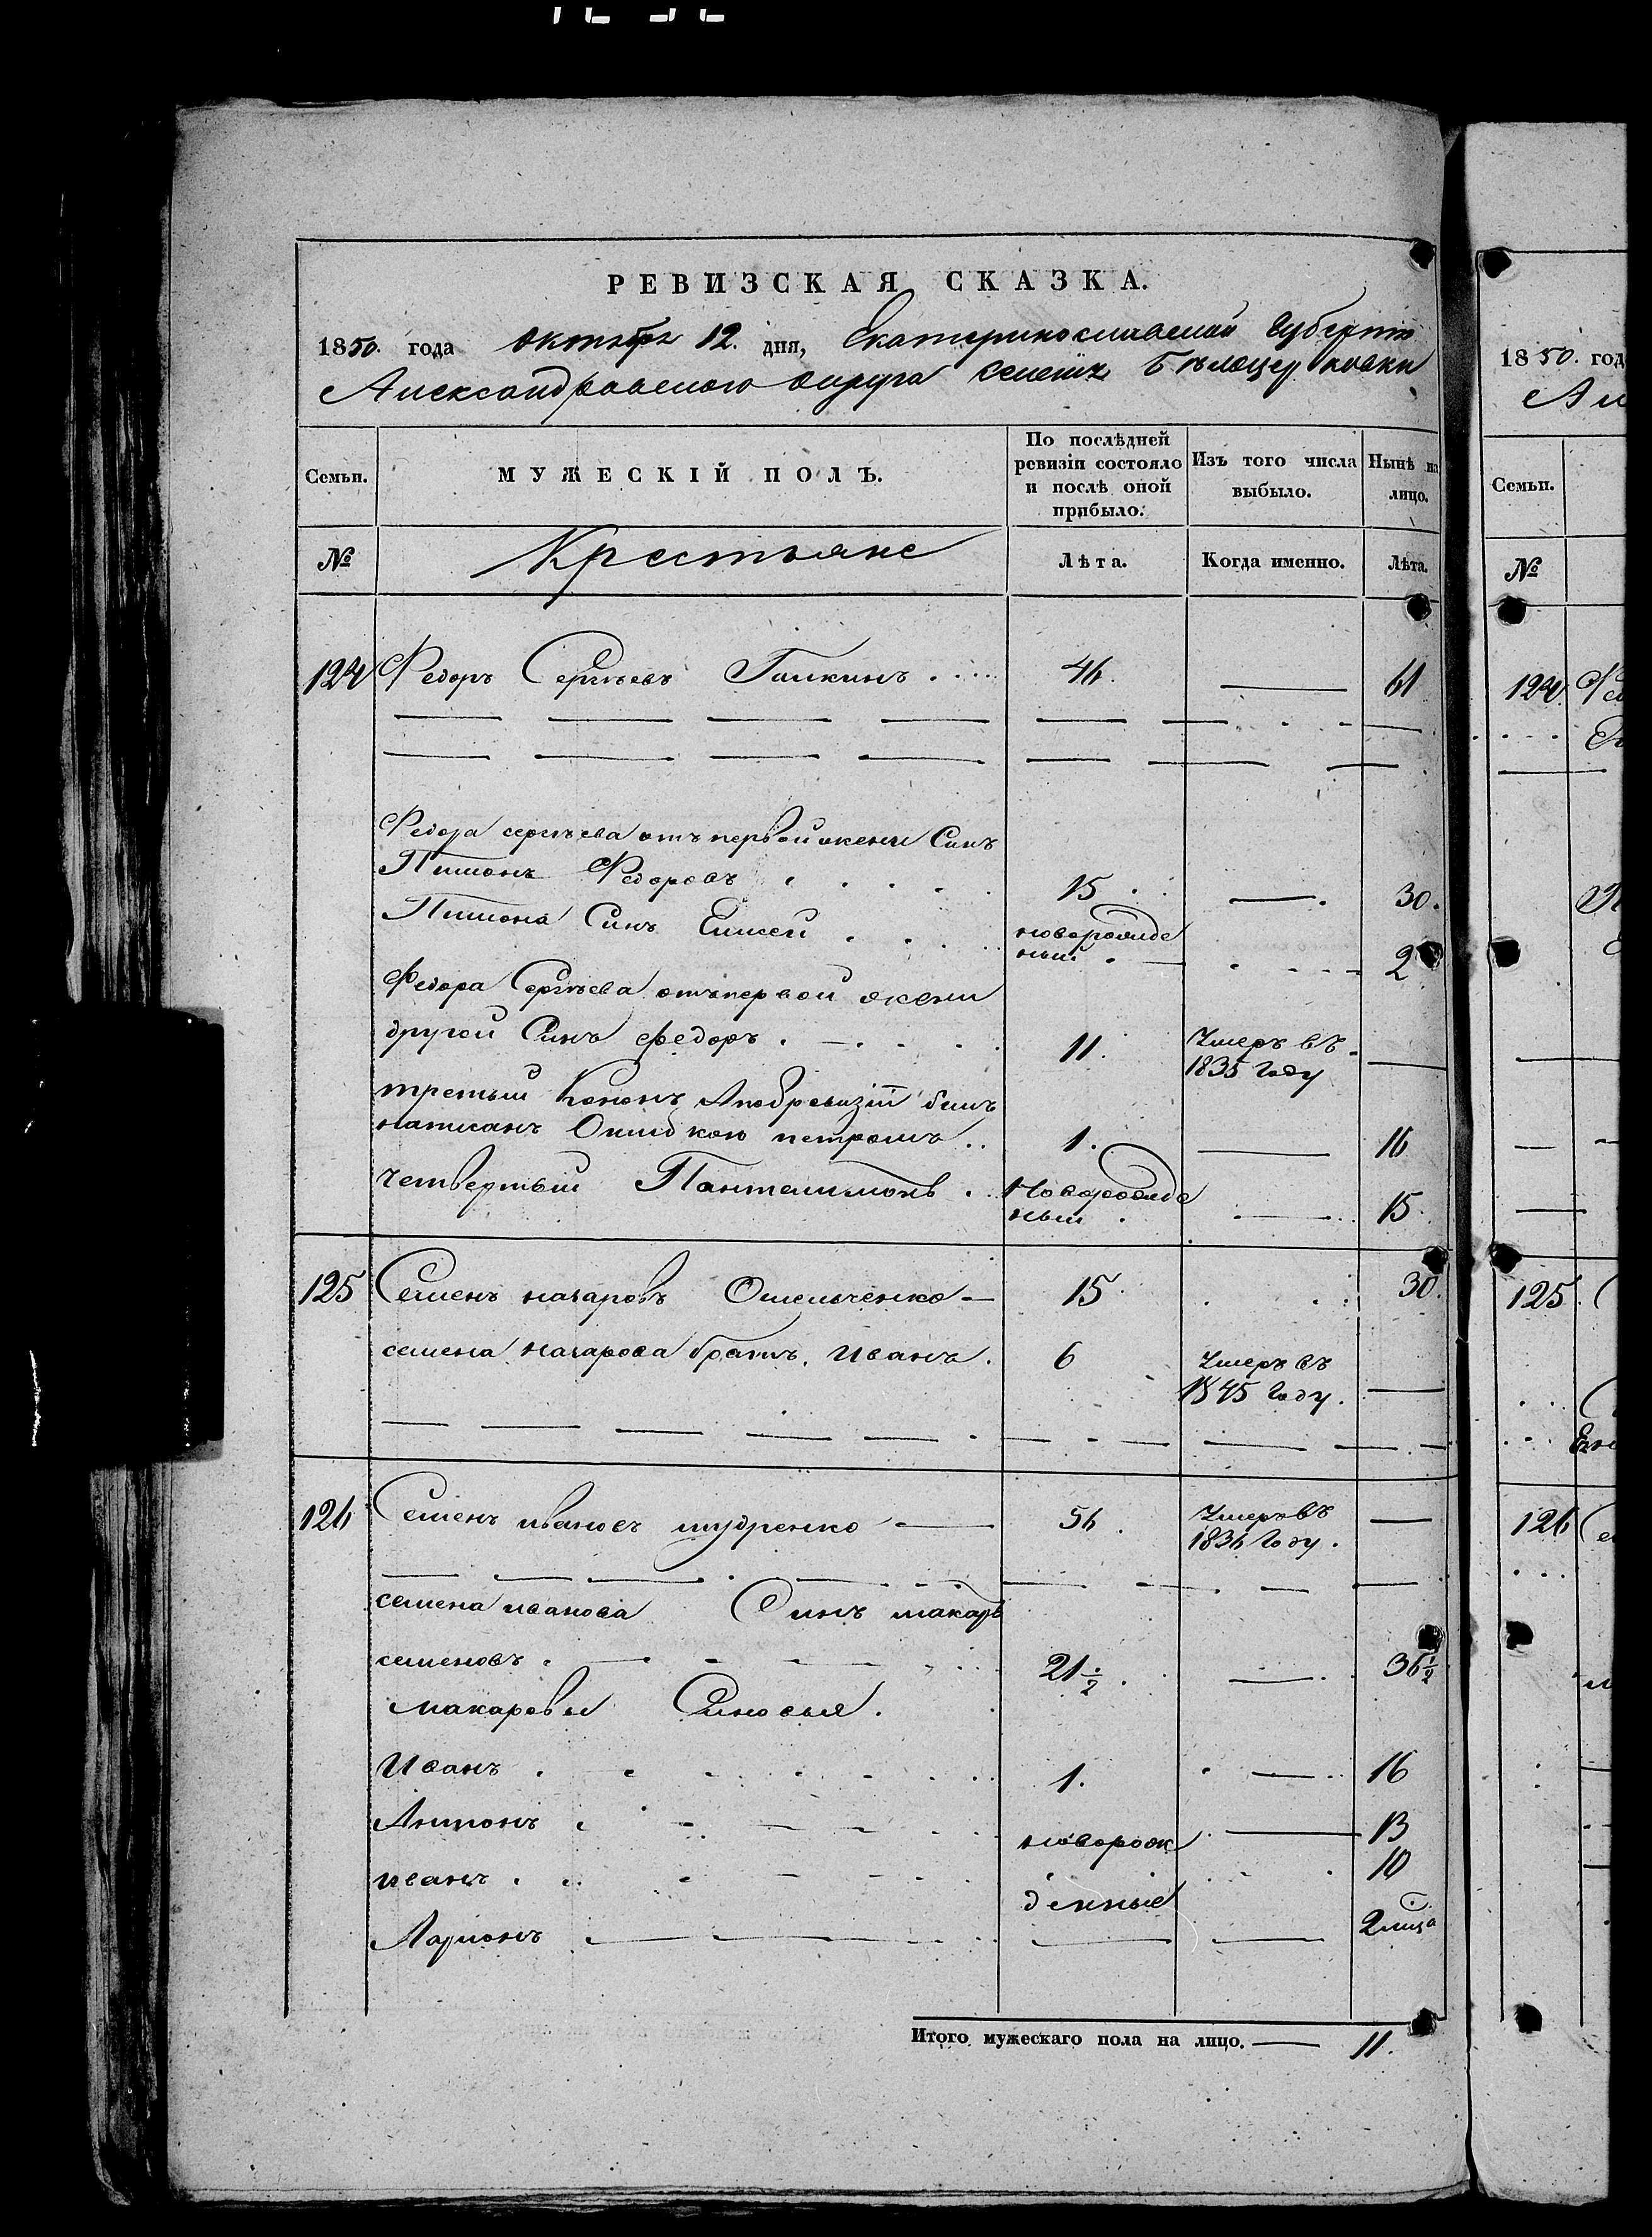 РЕВИЗСКАЯ СКАЗКА.
1850. года октября 12. дня, Екатеринославской Губерніи
Александровского округа селенія Бѣлоцерковки
Семьи.
МУЖЕСКІЙ ПОЛЪ.
По послѣдней ревизіи состояло и послѣ оной прибыло.
Изъ того числа выбыло.
Нынѣ на лицо.
№
Крестьяне
Лѣта.
Когда именно.
Лѣта.
124 Федоръ Сергѣевъ Галкинъ 46. 61
Федора сергѣева отъ первой жени Синъ
Пимонъ Федоровъ 15 30.
Пимона Синъ Елисей новорожде 2
ный
Федора Сергѣева отъ первой жени
другой Синъ федоръ 11. Умеръ въ
1835 Году
третьій Кононъ, Аповревизіи билъ
написанъ Ошибкою петромъ 1. 16
четвертый Пантелимонъ Новорожде
ный 15
125 Семенъ назаровъ Омельченко 15 30.
семена назарова братъ иванъ 6 Умеръ въ
1845 Году.
126 Семенъ ивановъ шудренко 56. Умеръ въ
1836 Году.
семена иванова Синъ макаръ
семеновъ 21 1/2 36 1/2
макаровы Синовья.
Иванъ 1. 16
Антонъ новорож 13
иванъ 10
денные
Ларионъ 2 мца
Итого мужескаго пола на лицо. 11.
1850. год
Ал
Семьи.
№
124
125
126